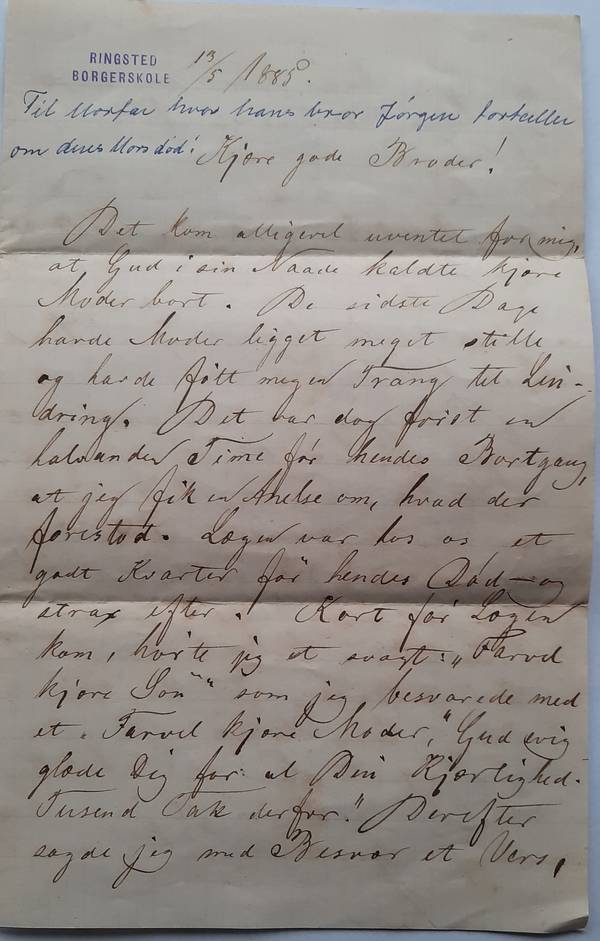 RINGSTED
BORGERSKOLE 13/5 1885.
Til Morfar hvor hans bror Jørgen fortæller
om deres Mors død!
Kjære gode Broder!
Det kom alligevel uventet for mig,
at Gud i sin Naade kaldte kjære
Moder bort. De sidste Dage
havde Moder ligget meget stille
og havde følt megen Trang til Lin-
dring. Det var dog først en
halvanden Time før hendes Bortgang,
at jeg fik en Anelse om, hvad der
forestod. Lægen var hos os et
godt Kvarter før hendes Død – og
strax efter. Kort før Lægen
kom, hørte jeg et svagt: „Farvel
kjære Søn" som jeg besvarede med
et „Farvel kjære Moder," Gud evig
glæde Dig for al Din Kjærlighed.
Tusend Tak derfor." Derefter
sagde jeg med Besvær et Vers,